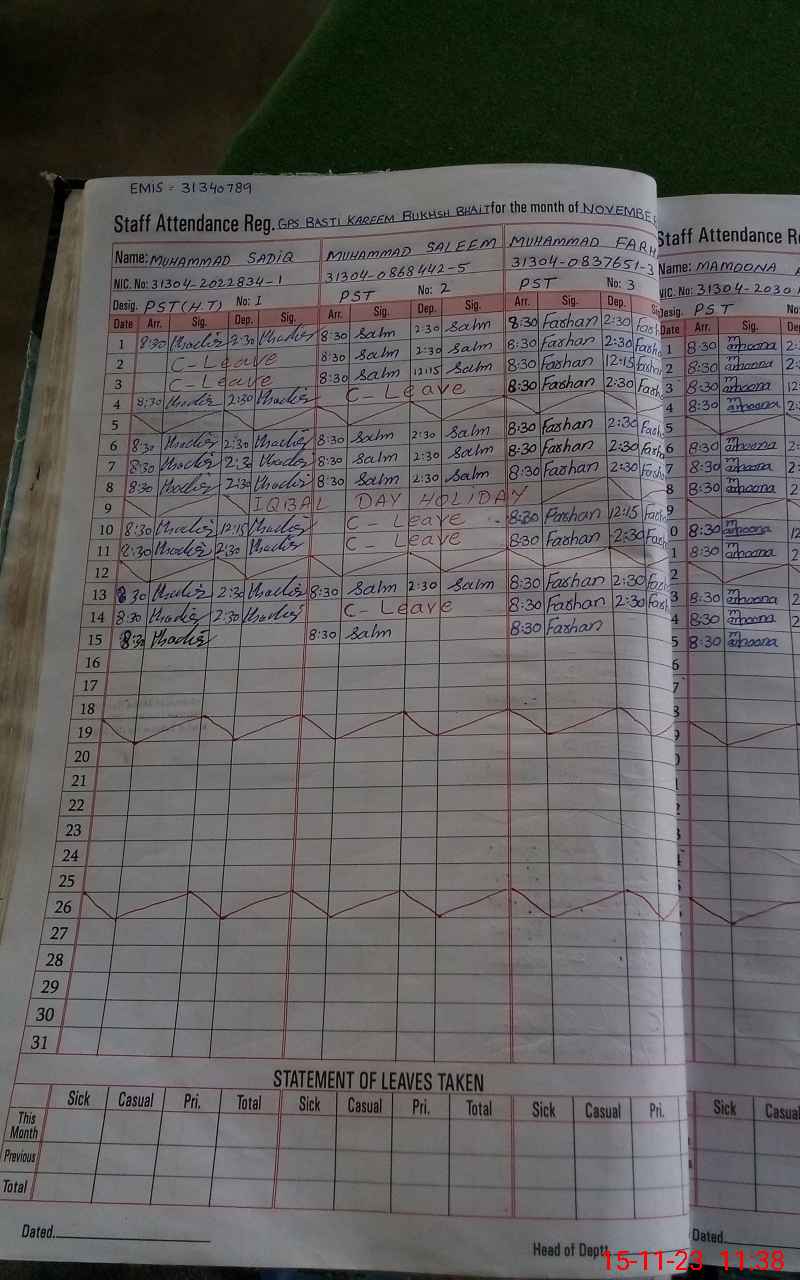 EMIS = 31340789
Staff Attendance Reg. GPS BASTI KAREEM BUKHSH BHAIT for the month of NOVEMBE
Name: MUHAMMAD SADIQ MUHAMMAD SALEEM MUHAMMAD FARH
NIC. No: 31304-2022834-1 31304-0868442-5 31304-0837651-3
Desig. PST (H.T) No: 1 PST No: 2 PST No: 3
Date Arr. Sig. Dep. Sig. Arr. Sig. Dep. Sig. Arr. Sig. Dep. Si
1 8:30 2:30 8:30 Salm 2:30 Salm 8:30 Farhan 2:30 Farh
2 C-Leave 8:30 Salm 2:30 Salm 8:30 Farhan 2:30 Farh
3 C-Leave 8:30 Salm 12:15 Salm 8:30 Farhan 12:15 Farh
4 8:30 2:30 C-Leave 8:30 Farhan 2:30 Farh
5
6 8:30 2:30 8:30 Salm 2:30 Salm 8:30 Farhan 2:30 Farh
7 8:30 2:30 8:30 Salm 2:30 Salm 8:30 Farhan 2:30 Farh
8 8:30 2:30 8:30 Salm 2:30 Salm 8:30 Farhan 2:30 Farh
9 IQBAL DAY HOLIDAY
10 8:30 12:15 C-Leave 8:30 Farhan 12:15 Farh
11 8:30 2:30 C-Leave 8:30 Farhan 2:30 Farh
12
13 8:30 2:30 8:30 Salm 2:30 Salm 8:30 Farhan 2:30 Farh
14 8:30 2:30 C-Leave 8:30 Farhan 2:30 Farh
15 8:30 8:30 Salm 8:30 Farhan
16
17
18
19
20
21
22
23
24
25
26
27
28
29
30
31
STATEMENT OF LEAVES TAKEN
Sick Casual Pri. Total Sick Casual Pri. Total Sick Casual Pri.
This Month
Previous
Total
Dated. Head of Deptt.
Staff Attendance Re
Name: MAMOONA
NIC. No: 31304-2030
Desig. PST No
Date Arr. Sig. Dep.
1 8:30 mamoona 2:
2 8:30 mamoona 2:
3 8:30 mamoona 12
4 8:30 mamoona 2:
5
6 8:30 mamoona 2:
7 8:30 mamoona 2:
8 8:30 mamoona 2
0 8:30 mamoona 12
1 8:30 mamoona 2
2
3 8:30 mamoona 2
4 8:30 mamoona 2
5 8:30 mamoona
6
7
8
9
Sick Casual
Dated.
15-11-23 11:38